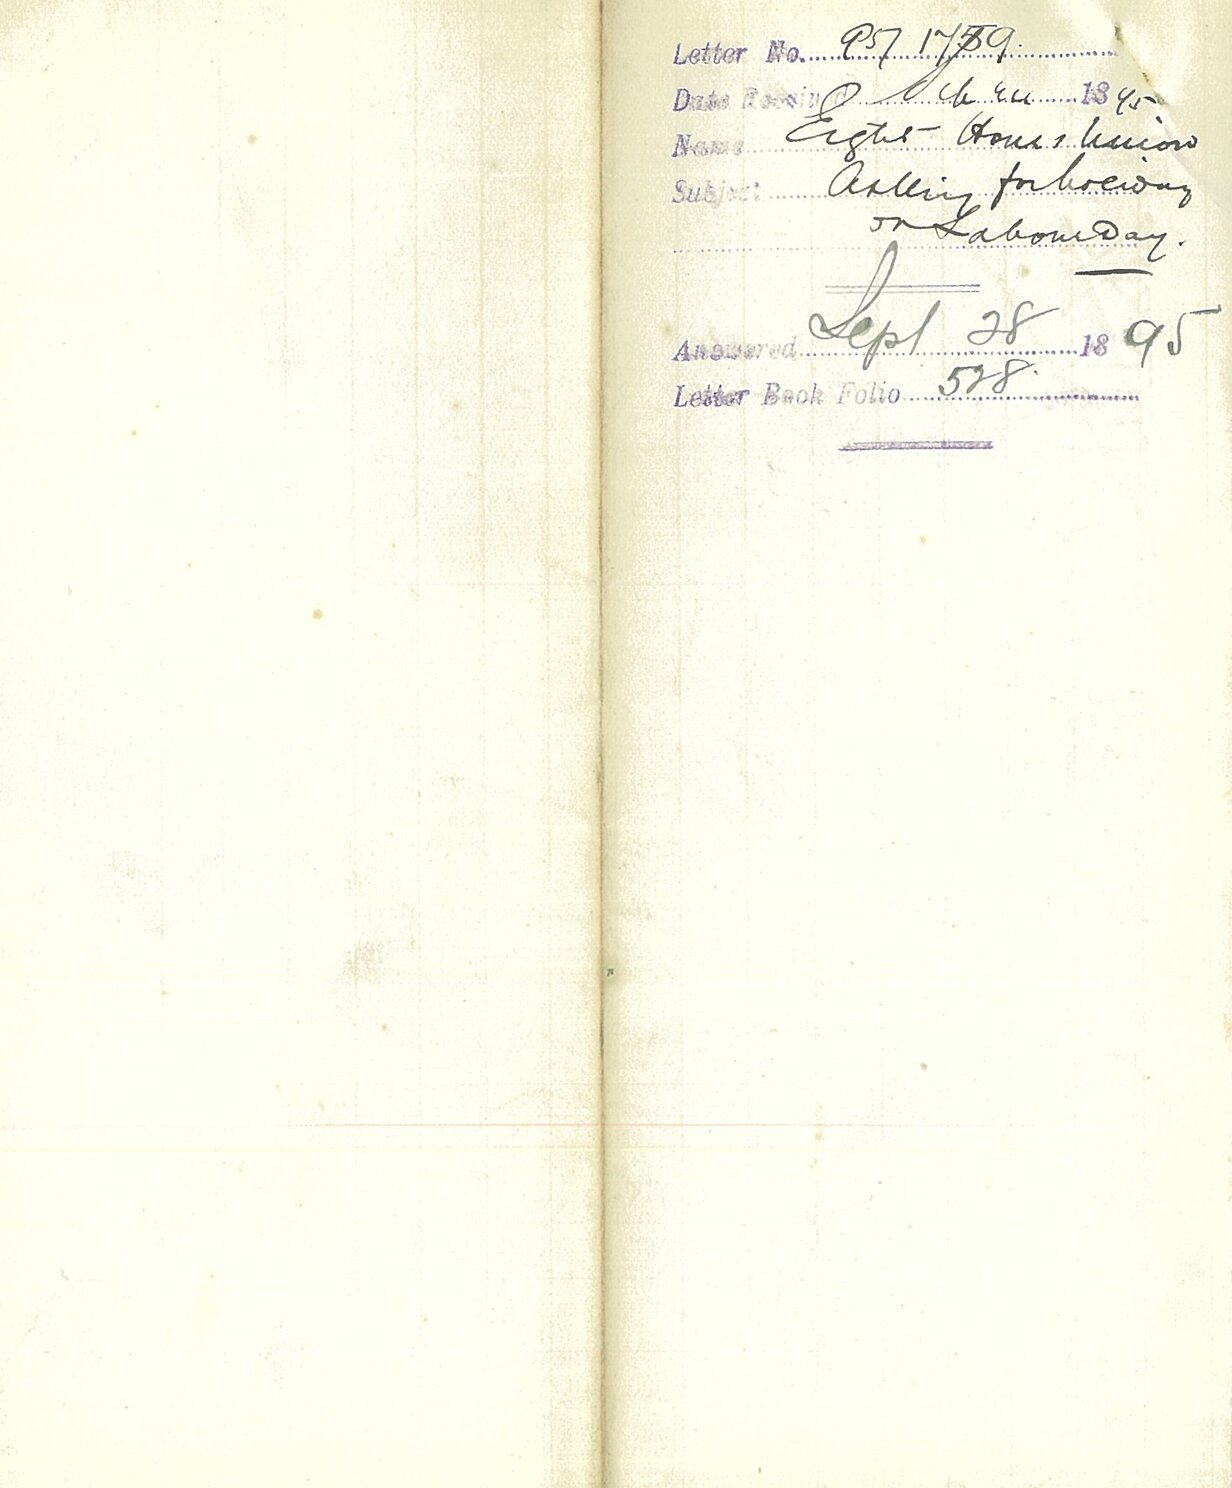 Letter No. 95/1759
Date Received 1895
Name Eight Hours Union
Subject Asking for holiday
on Labour Day.
Answered Sept 28 1895
Letter Book Folio 528